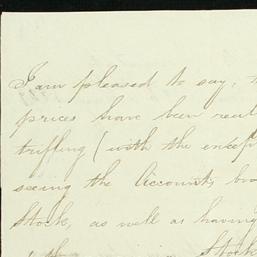 I am pleased to say,
prices have been real
trifling (with the except
seeing the Accounts bro
Stock, as well as having
Stock